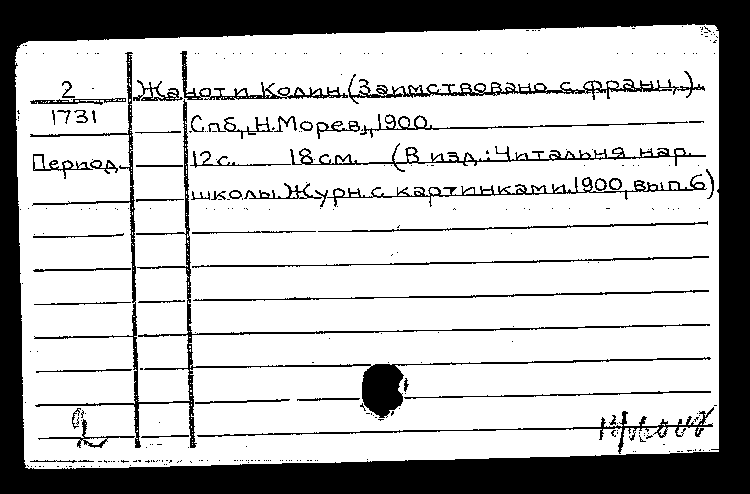 2 Жанот и Колин. (Заимствовано с франц.).
1731
Спб, "Н.Морев", 1900.
Период. 12 с. 18 см. (В изд.: Читальня нар.
школы. Журн. с картинками. 1900, вып. 6).
2